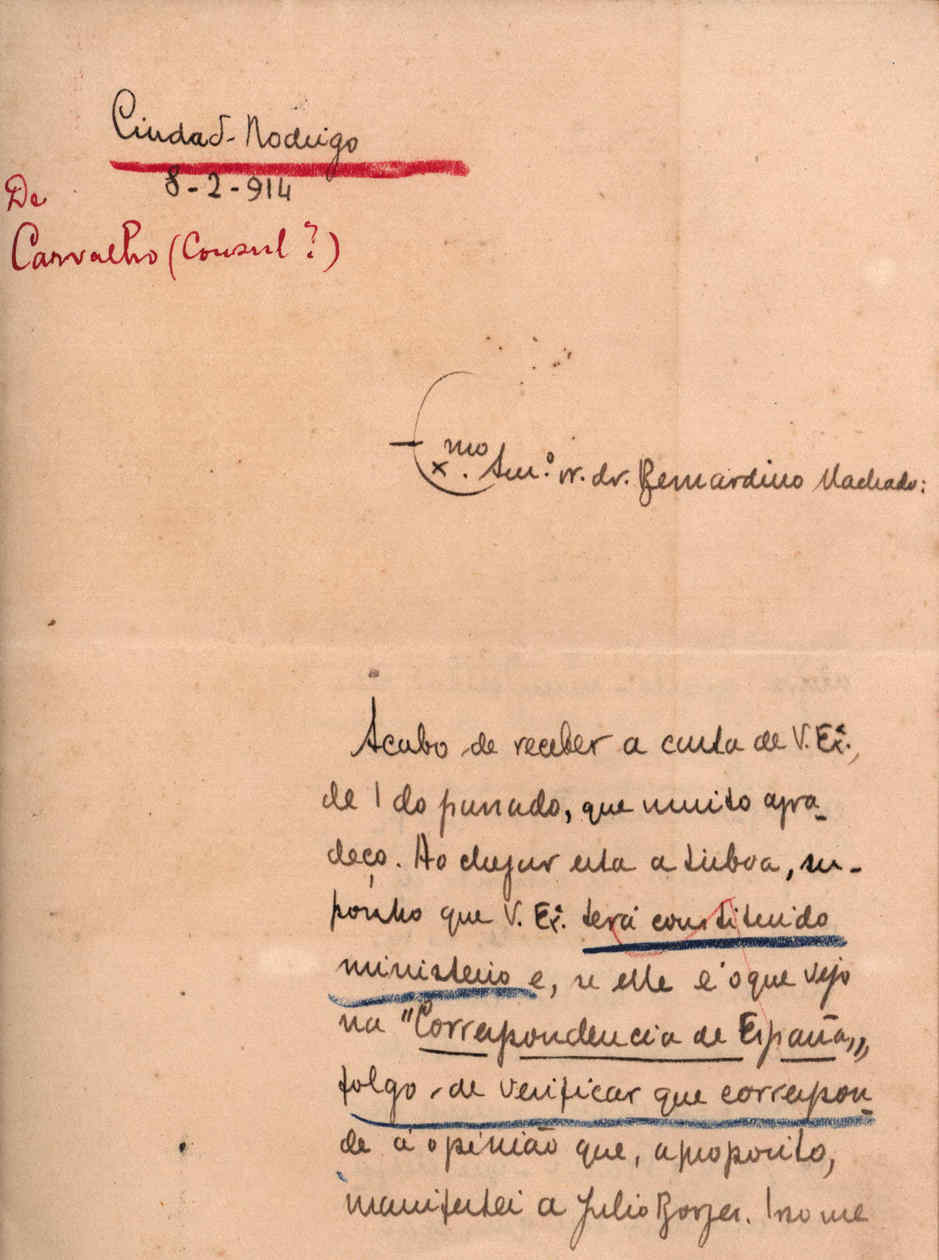 Ciudad-Rodrigo
8-2-914
De
Carvalho (Consul?)
Exmo. Snr. dr. Bernardino Machado:
Acabo de receber a carta de V. Exª.,
de 1 do passado, que muito agra-
deço. Ao chegar esta a Lisboa, su-
ponho que V. Exª. terá constituido
ministerio e, se elle é o que vejo
na "Correspondencia de España",
folgo de verificar que correspon-
de á opinião que, a proposito,
manifestei a Julio Borges. Isso me